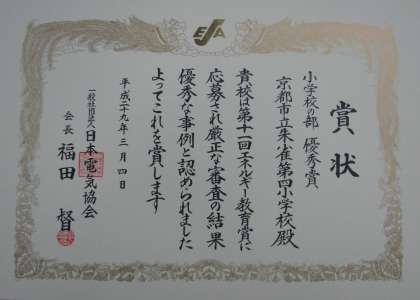 賞状
小学校の部 優秀賞
京都市立朱雀第四小学校殿
貴校は第十一回エネルギー教育賞に
応募され厳正な審査の結果
優秀な事例と認められました
よってこれを賞します
平成二十九年三月四日
一般社団法人日本電気協会
会長 福田 督